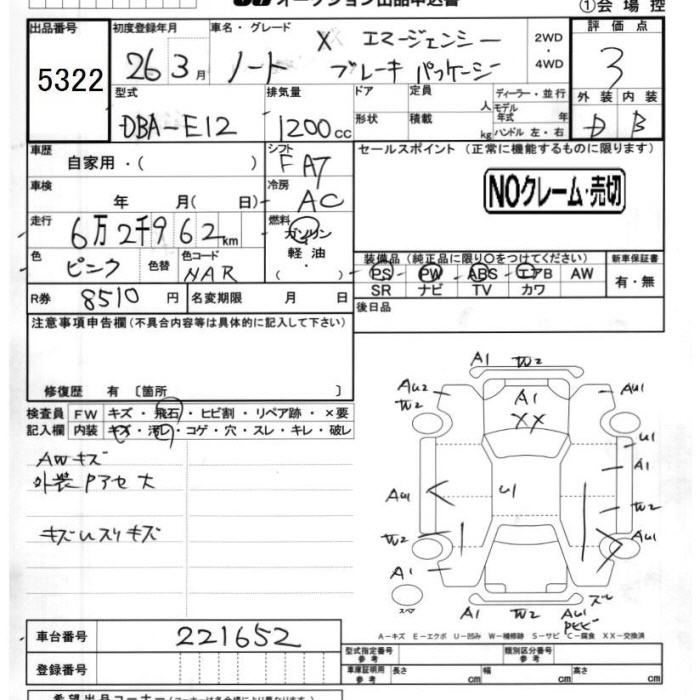 オークション出品申込書
①会場控
出品番号
5322
初度登録年月
26 3月
車名・グレード
ノート X エマージェンシー
ブレーキパッケージ
2WD
・
4WD
評価点
3
型式
DBA-E12
排気量
1200cc
ドア
形状
定員
人
積載
kg
ディーラー・並行
モデル年式
年
ハンドル 左・右
外装 内装
D B
車歴
自家用・( )
シフト
FAT
セールスポイント (正常に機能するものに限ります)
NOクレーム・売切
車検
年 月( 日)
冷房
AC
走行
6万2千962km
燃料
ガソリン
軽油・
( )
色
ピンク
色替
色コード
NAR
装備品(純正品に限り○をつけてください)
PS PW ABS エアB AW
SR ナビ TV カワ
新車保証書
有・無
R券
8510円
名変期限 月 日
後日品
注意事項申告欄(不具合内容等は具体的に記入して下さい)
修復歴 有 〔箇所 〕
検査員
記入欄
FW キズ・飛石・ヒビ割・リペア跡・×要
内装 キズ・汚レ・コゲ・穴・スレ・キレ・破レ
AWキズ
外装Pアセ大
キズUスリキズ
A1 W2
AU2
W2
A1
XX
AU1
U1
A1
AU1
U1
W2
W2
AU1
A1
スペア
A1 W2 AU1
A-キズ E-エクボ U-凹み W-補修跡 S-サビ C-腐食 XX-交換済
車台番号
221652
登録番号
型式指定番号
参考
類別区分番号
参考
車庫証明用
参考
長さ
cm
幅
cm
高さ
cm
希望出品コーナー